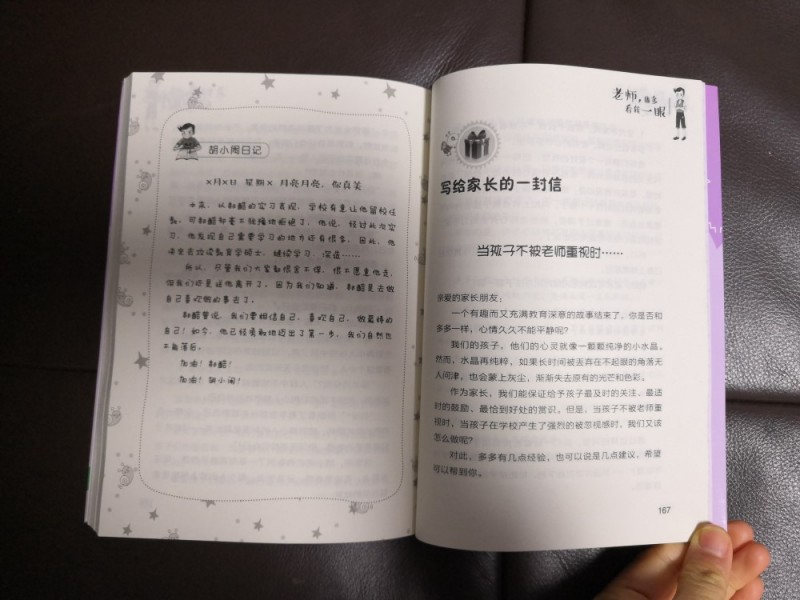 胡小闹日记
x月x日 星期x 月亮月亮，你真美
以郝酷的实习表现，学校有意让他留校任
教，可郝酷却毫不犹豫地拒绝了。他说，经过此次实
习，他发现自己需要学习的地方还有很多，因此，他
决定去攻读教育学硕士，继续学习、深造……
所以，尽管我们大家都很舍不得，很不愿意他走，
但我们还是让他离开了，因为我们知道，郝酷是去做
自己喜欢做的事去了。
郝酷曾说，我们要相信自己，喜欢自己，做最棒的
自己！如今，他已经勇敢地迈出了第一步，我们自然也
不能落后。
加油！郝酷！
加油！胡小闹！
老师，请多
看我一眼
写给家长的一封信
当孩子不被老师重视时……
亲爱的家长朋友：
一个有趣而又充满教育深意的故事结束了，你是否和
多多一样，心情久久不能平静呢？
我们的孩子，他们的心灵就像一颗颗纯净的小水晶。
然而，水晶再纯粹，如果长时间被丢弃在不起眼的角落无
人问津，也会蒙上灰尘，渐渐失去原有的光芒和色彩。
作为家长，我们能保证给予孩子最及时的关注、最适
时的鼓励、最恰到好处的赏识，但是，当孩子不被老师重
视时，当孩子在学校产生了强烈的被忽视感时，我们又该
怎么做呢？
对此，多多有几点经验，也可以说是几点建议，希望
可以帮到你。
167